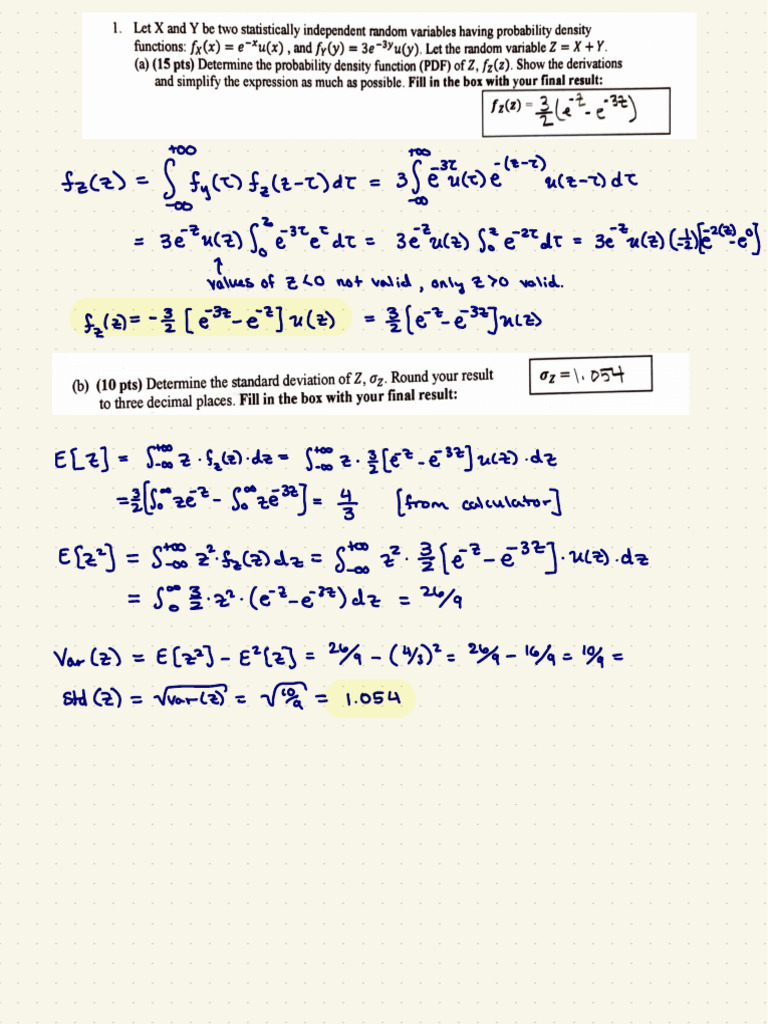 1. Let X and Y be two statistically independent random variables having probability density
functions: fX(x) = e^-x u(x) , and fY(y) = 3e^-3y u(y). Let the random variable Z = X + Y.
(a) (15 pts) Determine the probability density function (PDF) of Z, fZ(z). Show the derivations
and simplify the expression as much as possible. Fill in the box with your final result:
fZ(z) = 3/2 (e^-z - e^-3z)
fz(z) = ∫_-∞^+∞ fy(τ) fz(z-τ) dτ = 3 ∫_-∞^+∞ e^-3τ u(τ) e^-(z-τ) u(z-τ) dτ
= 3e^-z u(z) ∫_0^z e^-3τ e^τ dτ = 3e^-z u(z) ∫_0^z e^-2τ dτ = 3e^-z u(z) (-1/2) [e^-2(z) - e^0]
↑
values of z < 0 not valid, only z > 0 valid.
fz(z) = -3/2 [e^-3z - e^-z] u(z) = 3/2 [e^-z - e^-3z] u(z)
(b) (10 pts) Determine the standard deviation of Z, σZ. Round your result
to three decimal places. Fill in the box with your final result:
σZ = 1.054
E[z] = ∫_-∞^+∞ z · fz(z) · dz = ∫_-∞^+∞ z · 3/2 [e^-z - e^-3z] u(z) · dz
= 3/2 [∫_0^∞ ze^-z - ∫_0^∞ ze^-3z] = 4/3 [from calculator]
E[z²] = ∫_-∞^+∞ z² · fz(z) dz = ∫_-∞^+∞ z² · 3/2 [e^-z - e^-3z] · u(z) · dz
= ∫_0^∞ 3/2 · z² · (e^-z - e^-3z) dz = 26/9
Var(z) = E[z²] - E²[z] = 26/9 - (4/3)² = 26/9 - 16/9 = 10/9 =
Std(z) = √var(z) = √10/9 = 1.054